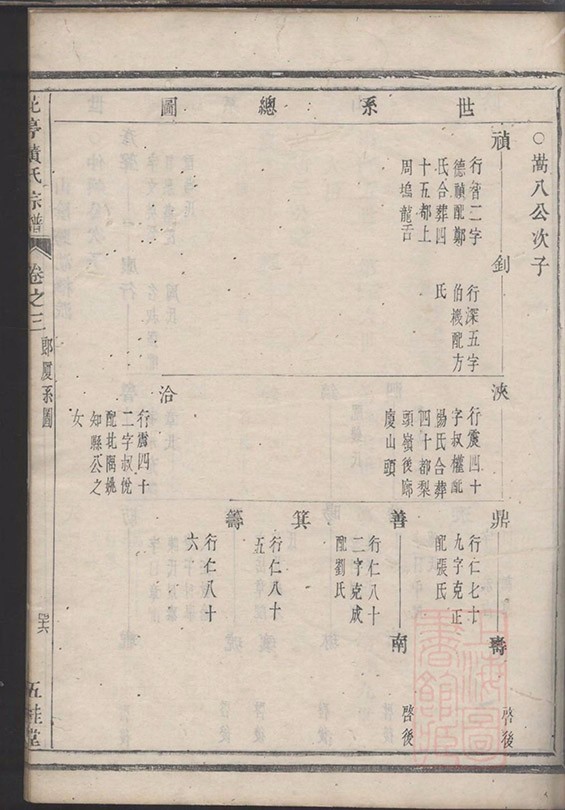 世系總圖
○嵩八公次子
禎
行晉二字
德禎配鄭
氏合葬四
十五都上
周塢龍舌
釗
行深五字
伯機配方
氏
浹
行震四十
字叔權配
楊氏合葬
四十都梨
頭嶺後廊
廈山頭
洽
行震四十
二字叔悅
配北隅姚
知縣公之
女
鼎
行仁七十
九字克正
配張氏
壽
啓後
善
行仁八十
二字克成
配劉氏
南
啓後
箕
行仁八十
五
籌
行仁八十
六
黄氏宗譜
卷之三
郎廈系圖
五桂堂